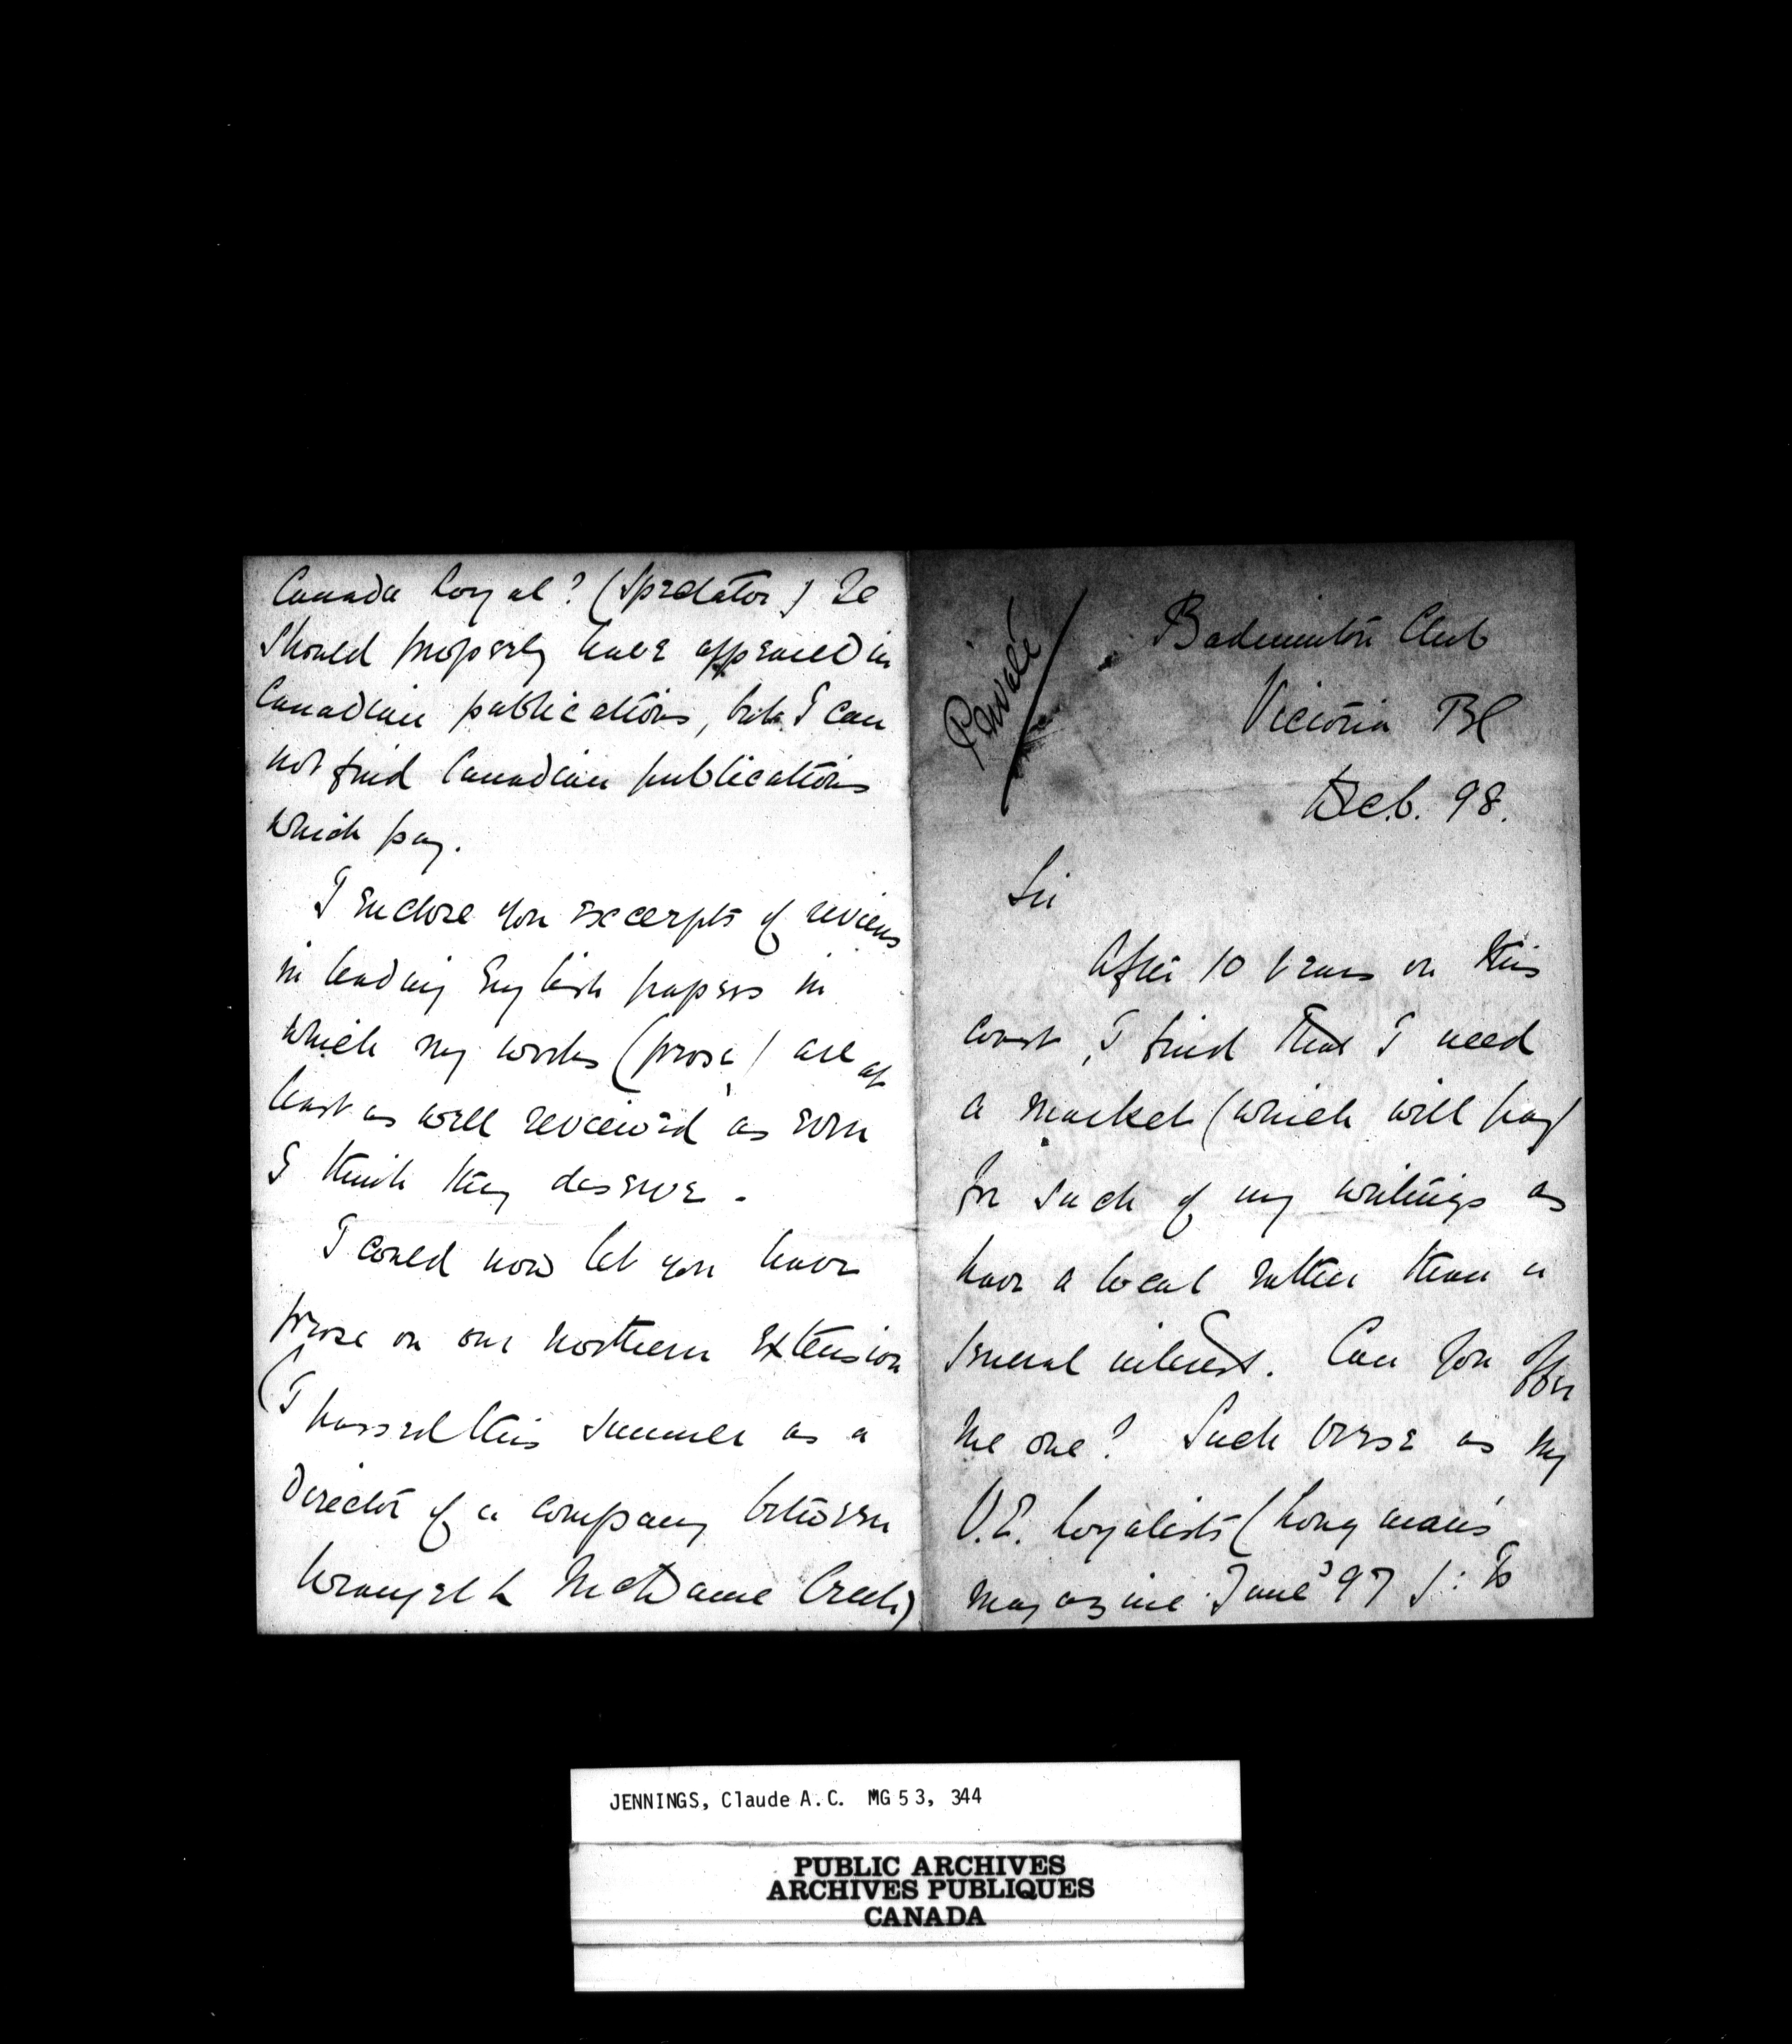 Private
Badminton Club
Victoria BC
Dec. 6. 98.
Sir
After 10 years on this
coast, I find that I need
a market (which will pay)
for such of my writings as
have a local rather than a
general interest. Can you offer
me one? Such verse as my
U.E. Loyalists (Longman's
magazine June '97): Is
Canada loyal? (Spectator) &c
should properly have appeared in
Canadian publications, but I can
not find Canadian publications
which pay.
I enclose you excerpts of reviews
in leading English papers in
which my works (prose) are at
least as well reviewed as even
I think they deserve.
I could now let you have
prose on our northern extension
(I passed this summer as a
Director of a company between
Wrangel & McDame Creek)
JENNINGS, Claude A.C. MG 53, 344
PUBLIC ARCHIVES
ARCHIVES PUBLIQUES
CANADA